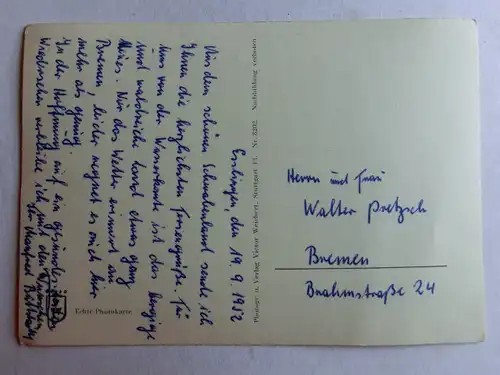 Esslingen, den 19.9.1952
Von dem schönen Schwabenland sende ich
Ihnen die herzlichsten Feriengrüße. Für
uns von der Wasserkante ist das bergige
und waldreiche Land etwas ganz
Neues. Nur das Wetter erinnert an
Bremen, leider regnet es auch hier
mehr als genug.
In der Hoffnung auf ein gesundes
Wiedersehen verbleibe ich mit den
Ihr Manfred
Echte Photokarte
Photogr. u. Verlag Victor Weichert, Stuttgart 13. Nr. 8202. Nachbildung verboten
Herrn und Frau
Walter Pretzsch
Bremen
Brahmstraße 24